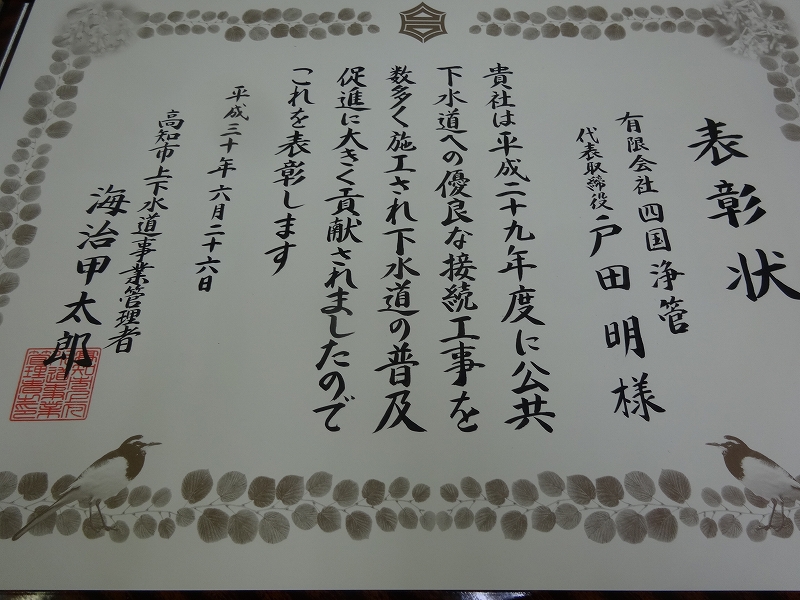 表彰状
有限会社 四国浄管
代表取締役 戸田 明 様
貴社は平成二十九年度に公共
下水道への優良な接続工事を
数多く施工され下水道の普及
促進に大きく貢献されましたので
これを表彰します
平成三十年六月二十六日
高知市上下水道事業管理者
海治甲太郎